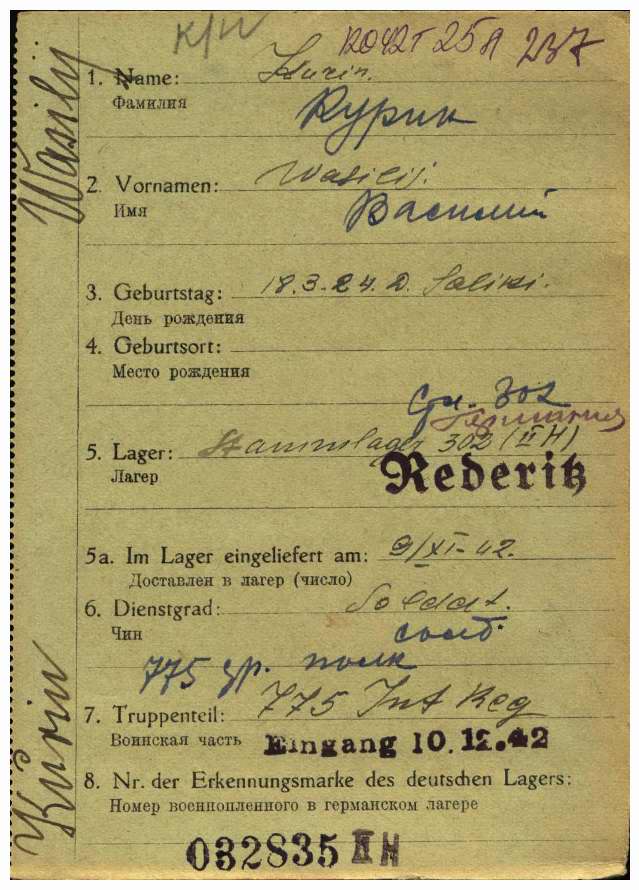 к/п
12042т 25А 237
1. Name: Kurin.
Фамилия
Курин
2. Vornamen: Wasilij.
Имя
Василий
3. Geburtstag: 18.3.24. D.
День рождения
4. Geburtsort:
Место рождения
302
Германия
5. Lager: Stammlager 302 (II H)
Лагер
Rederitz
5a. Im Lager eingeliefert am: 9/XI-42.
Доставлен в лагер (число)
6. Dienstgrad: Soldat.
Чин
солд.
775 полк
7. Truppenteil: 775 Inf Reg
Воинская часть
Eingang 10.12.42
8. Nr. der Erkennungsmarke des deutschen Lagers:
Номер военнопленного в германском лагере
032835 II H
Kurin Wasilij